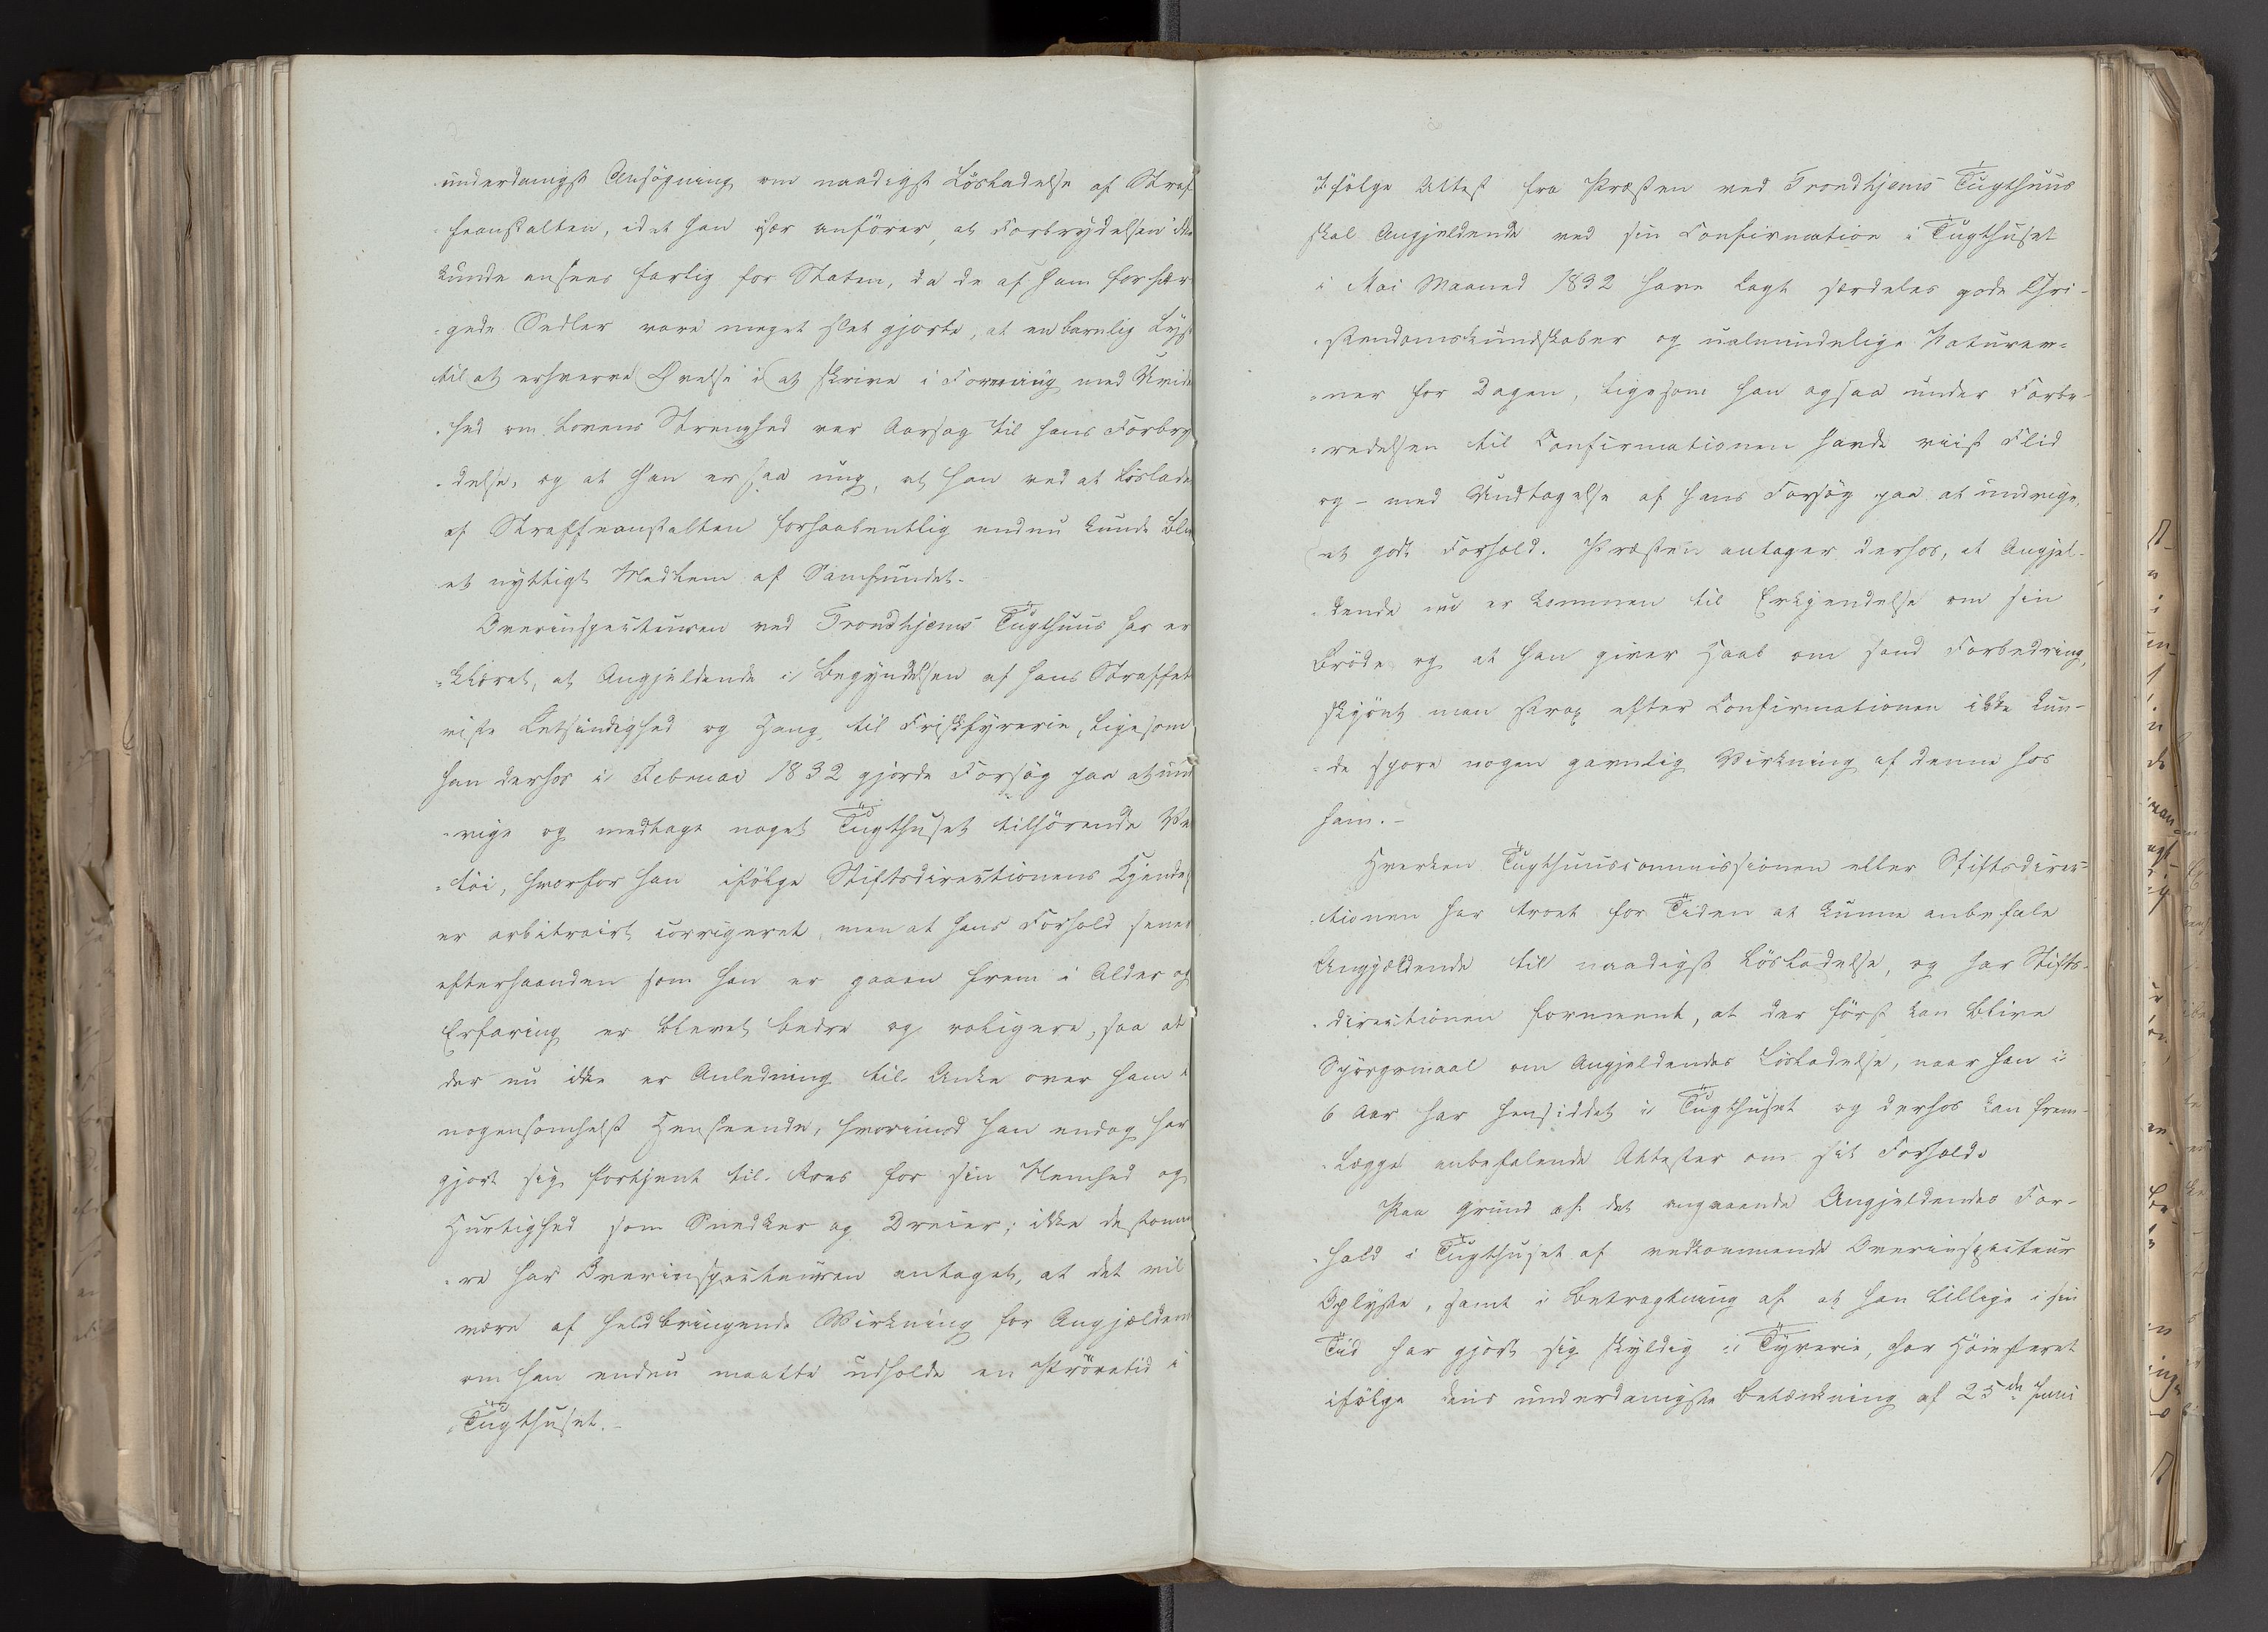 underdanigst Ansøgning om naadigst Løsladelse af Straf
-feanstalten, idet han især anfører, at Forbrydelsen ikke
kunde ansees farlig for Staten, da de af ham forfær-
-gede Sedler vare meget slet gjorte, at en barnlig Lyst
til at erhverve Øvelse i at skrive i Forening med Uvide
-hed om Lovens Strenghed var Aarsag til hans Forbry
-delse, og at han er saa ung, at han ved at løslades
af Straffeanstalten forhaabentlig endnu kunde blive
et nyttigt Medlem af Samfundet.
Overinspecteuren ved Trondhjems Tugthuus har er
-klæret, at Angjeldende i Begyndelsen af hans Straffet
viste Letsindighed og Hang til Friskfyrerie, ligesom
han derhos i Februar 1832 gjorde Forsøg paa at und
-vige og medtage noget Tugthuset tilhørende Ve
-tøi, hvorfor han ifølge Stiftsdirectionens Kjendels
er arbitrairt corrigeret, men at hans Forhold senere
efterhaanden som han er gaaen frem i Alder og
Erfaring er blevet bedre og roligere, saa at
der nu ikke er Anledning til Anke over ham i
nogensomhelst Henseende, hvorimod han endog har
gjort sig fortjent til Roes for sin Nemhed og
Hurtighed som Snedker og Dreier; ikke destomin
-re har Overinspecteuren antaget, at det vil
være af heldbringende Virkning for Angjældende
om han endnu maatte udholde en Prøvetid i
Tugthuset.-
Ifølge Attest fra Præsten ved Trondhjems Tugthuus
skal Angjeldende ved sin Confirmation i Tugthuset
i Mai Maaned 1832 have lagt særdeles gode Chri-
-stendomskundskaber og ualmindelige Naturev-
-ner for Dagen, ligesom han ogsaa under Forbe-
-redelsen til Confirmationen havde viist Flid
og - med Undtagelse af hans Forsøg paa at undvige,
et godt Forhold. Præsten antager derhos, at Angjel-
-dende nu er kommen til Erkjendelse om sin
Brøde og at han giver Haab om sand Forbedring,
skjønt man strax efter Confirmationen ikke kun-
-de spore nogen gavnlig Virkning af denne hos
ham.-
Hverken Tugthuuscommissionen eller Stiftsdirec-
-tionen har troet for Tiden at kunne anbefale
Angjældende til naadigst Løsladelse, og har Stifts-
-directionen formeent, at der først kan blive
Spørgsmaal om Angjeldendes Løsladelse, naar han i
6 Aar har hensiddet i Tugthuset og derhos kan frem-
-lægge anbefalende Attester om sit Forhold.
Paa Grund af det angaaende Angjeldendes For-
-hold i Tugthuset af vedkommende Overinspecteur
Oplyste, samt i Betragtning af at han tillige i sin
Tid har gjort sig skyldig i Tyverie, har Høiesteret
ifølge dens underdanigste Betænkning af 25de Juni